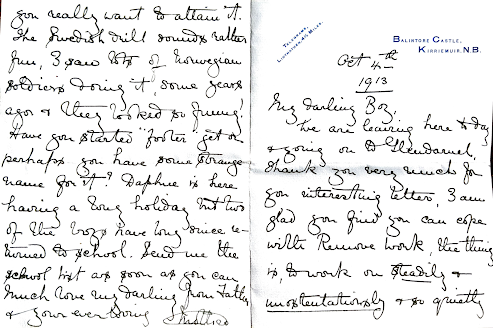 TELEGRAMS,
BALINTORE CASTLE,
KIRRIEMUIR, N.B.
Oct 4th
1913
My darling Boy,
We are leaving here to day
& going on to Glendaruel.
Thank you very much for
you interesting letter, I am
glad you find you can cope
with Remove work, the thing
is, to work on steadily &
unostentatiously & so quietly
you really want to attain it.
The Swedish drill sounds rather
fun, I saw lots of Norwegian
soldiers doing it, some years
ago & they looked so funny!
Have you started "footer" yet or
perhaps you have some strange
name for it? Daphne is here
having a long holiday but two
of the boys have long since re-
turned to school. Send me the
school list as soon as you can
Much love my darling from Father
& your ever loving
Mother